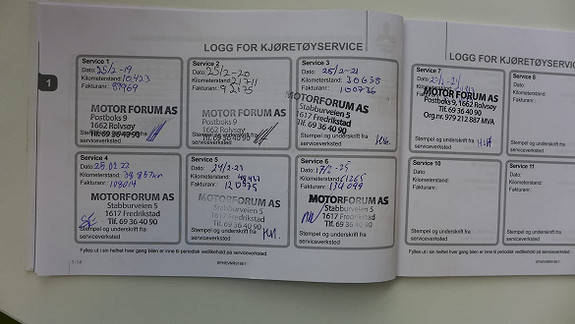 LOGG FOR KJØRETØYSERVICE
Service 1
Dato: 25/2-19
Kilometerstand: 10.423
Fakturanr.: 89969
MOTOR FORUM AS
Postboks 9
1662 Rolvsøy
Tlf. 69 36 40 90
Stempel og underskrift fra
serviceverksted
Service 2
Dato: 25/2-20
Kilometerstand: 21711
Fakturanr.: 92175
MOTOR FORUM AS
Postboks 9
1662 Rolvsøy
Tlf. 69 36 40 90
Stempel og underskrift fra
serviceverksted
Service 3
Dato: 25/2-21
Kilometerstand: 30638
Fakturanr.: 100736
MOTORFORUM AS
Stabburveien 5
1617 Fredrikstad
Tlf. 69 36 40 90
Stempel og underskrift fra
serviceverksted
Service 4
Dato: 25.02.22
Kilometerstand: 39.857km
Fakturanr.: 108014
MOTORFORUM AS
Stabburveien 5
1617 Fredrikstad
Tlf. 69 36 40 90
Stempel og underskrift fra
serviceverksted
Service 5
Dato: 24/2-23
Kilometerstand:
Fakturanr.:
MOTORFORUM AS
Stabburveien 5
1617 Fredrikstad
Tlf. 69 36 40 90
Stempel og underskrift fra
serviceverksted
Service 6
Dato:
Kilometerstand:
Fakturanr.: 134099
MOTORFORUM AS
Stabburveien 5
1617 Fredrikstad
Tlf. 69 36 40 90
Stempel og underskrift fra
serviceverksted
Fylles ut i sin helhet hver gang bilen er inne til periodisk vedlikehold på serviceverksted.
1
LOGG FOR KJØRETØYSERVICE
Service 7
Dato:
Kilometerstand:
Fakturanr.:
MOTORFORUM AS
Postboks 9, 1662 Rolvsøy
Tlf. 69 36 40 90
Org.nr. 979 212 887 MVA
Stempel og underskrift fra
serviceverksted
Service 8
Dato:
Kilometerstand:
Fakturanr.:
Stempel og underskrift fra
serviceverksted
Service 10
Dato:
Kilometerstand:
Fakturanr.:
Stempel og underskrift fra
serviceverksted
Service 11
Dato:
Kilometerstand:
Fakturanr.:
Stempel og underskrift fra
serviceverksted
Fylles ut i sin helhet hver gang bilen er inne til periodisk vedlikehold på serviceverksted.